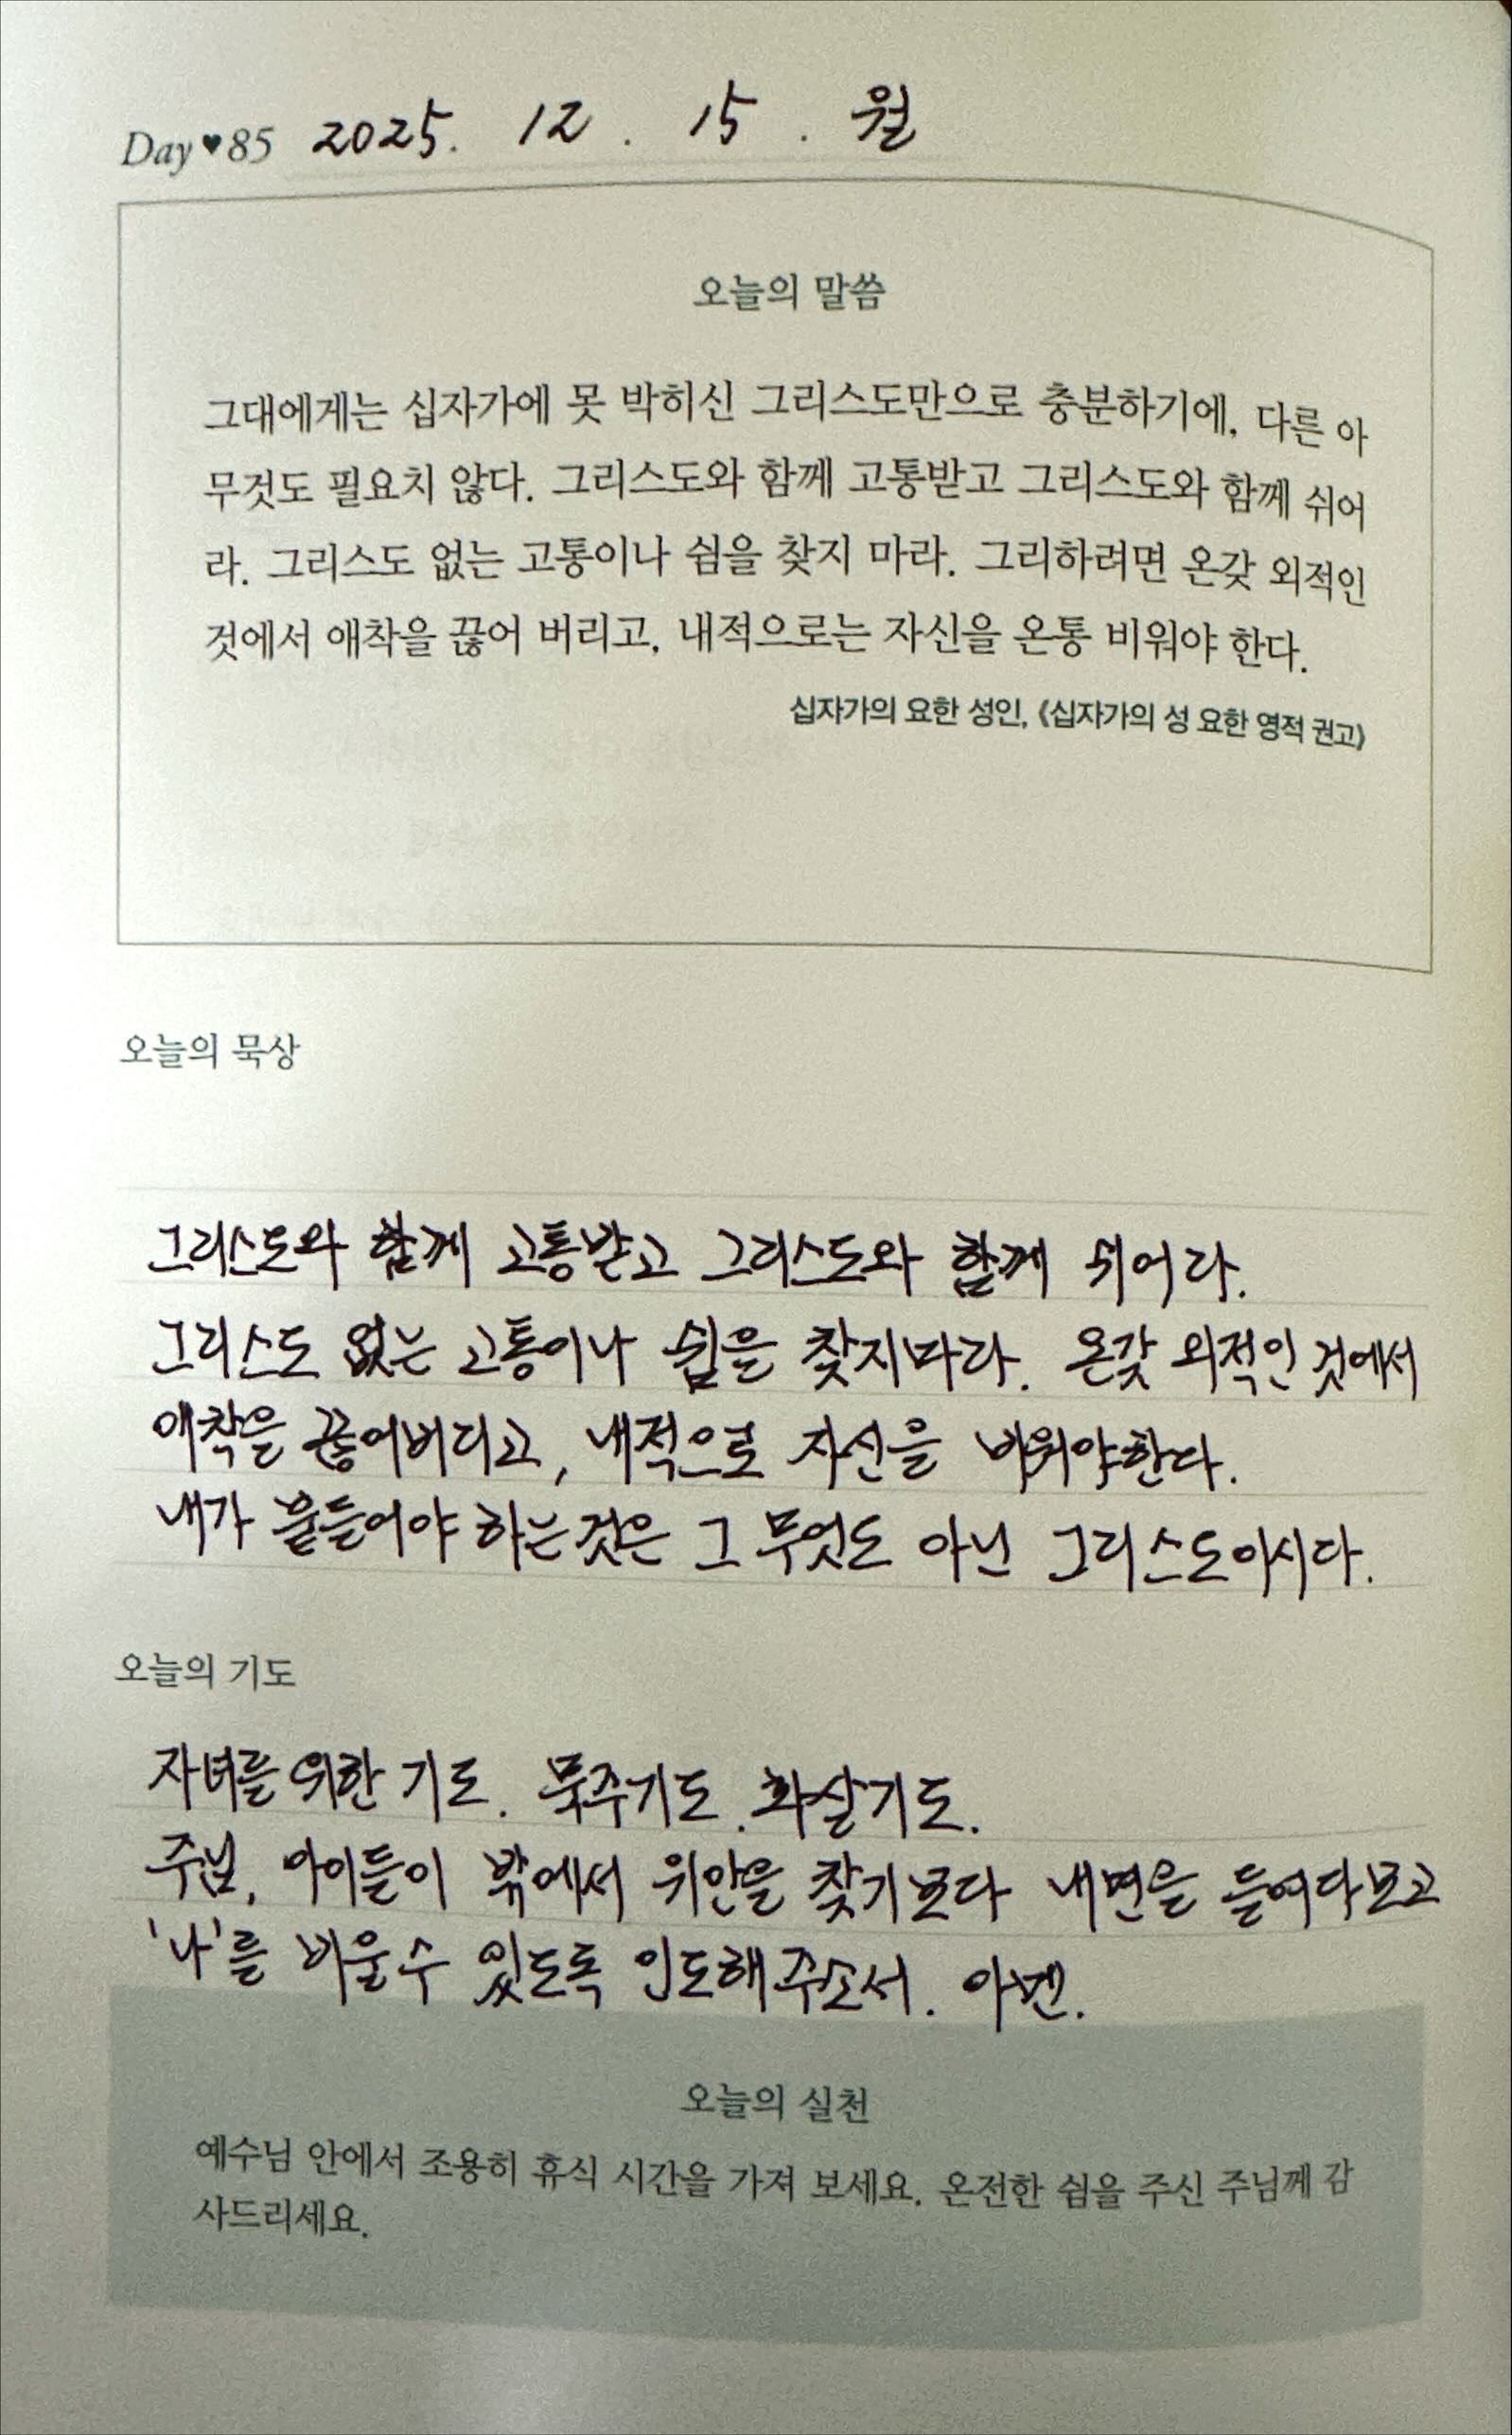 Day♥85 2025. 12. 15. 월
오늘의 말씀
그대에게는 십자가에 못 박히신 그리스도만으로 충분하기에, 다른 아
무것도 필요치 않다. 그리스도와 함께 고통받고 그리스도와 함께 쉬어
라. 그리스도 없는 고통이나 쉼을 찾지 마라. 그리하려면 온갖 외적인
것에서 애착을 끊어 버리고, 내적으로는 자신을 온통 비워야 한다.
십자가의 요한 성인, 《십자가의 성 요한 영적 권고》
오늘의 묵상
그리스도와 함께 고통받고 그리스도와 함께 쉬어라.
그리스도 없는 고통이나 쉼을 찾지마라. 온갖 외적인 것에서
애착을 끊어버리고, 내적으로 자신을 비워야한다.
내가 붙들어야 하는것은 그 무엇도 아닌 그리스도이시다.
오늘의 기도
자녀를 위한 기도. 묵주기도. 화살기도.
주님, 아이들이 밖에서 위안을 찾기보다 내면을 들여다보고
'나'를 비울수 있도록 인도해주소서. 아멘.
오늘의 실천
예수님 안에서 조용히 휴식 시간을 가져 보세요. 온전한 쉼을 주신 주님께 감
사드리세요.